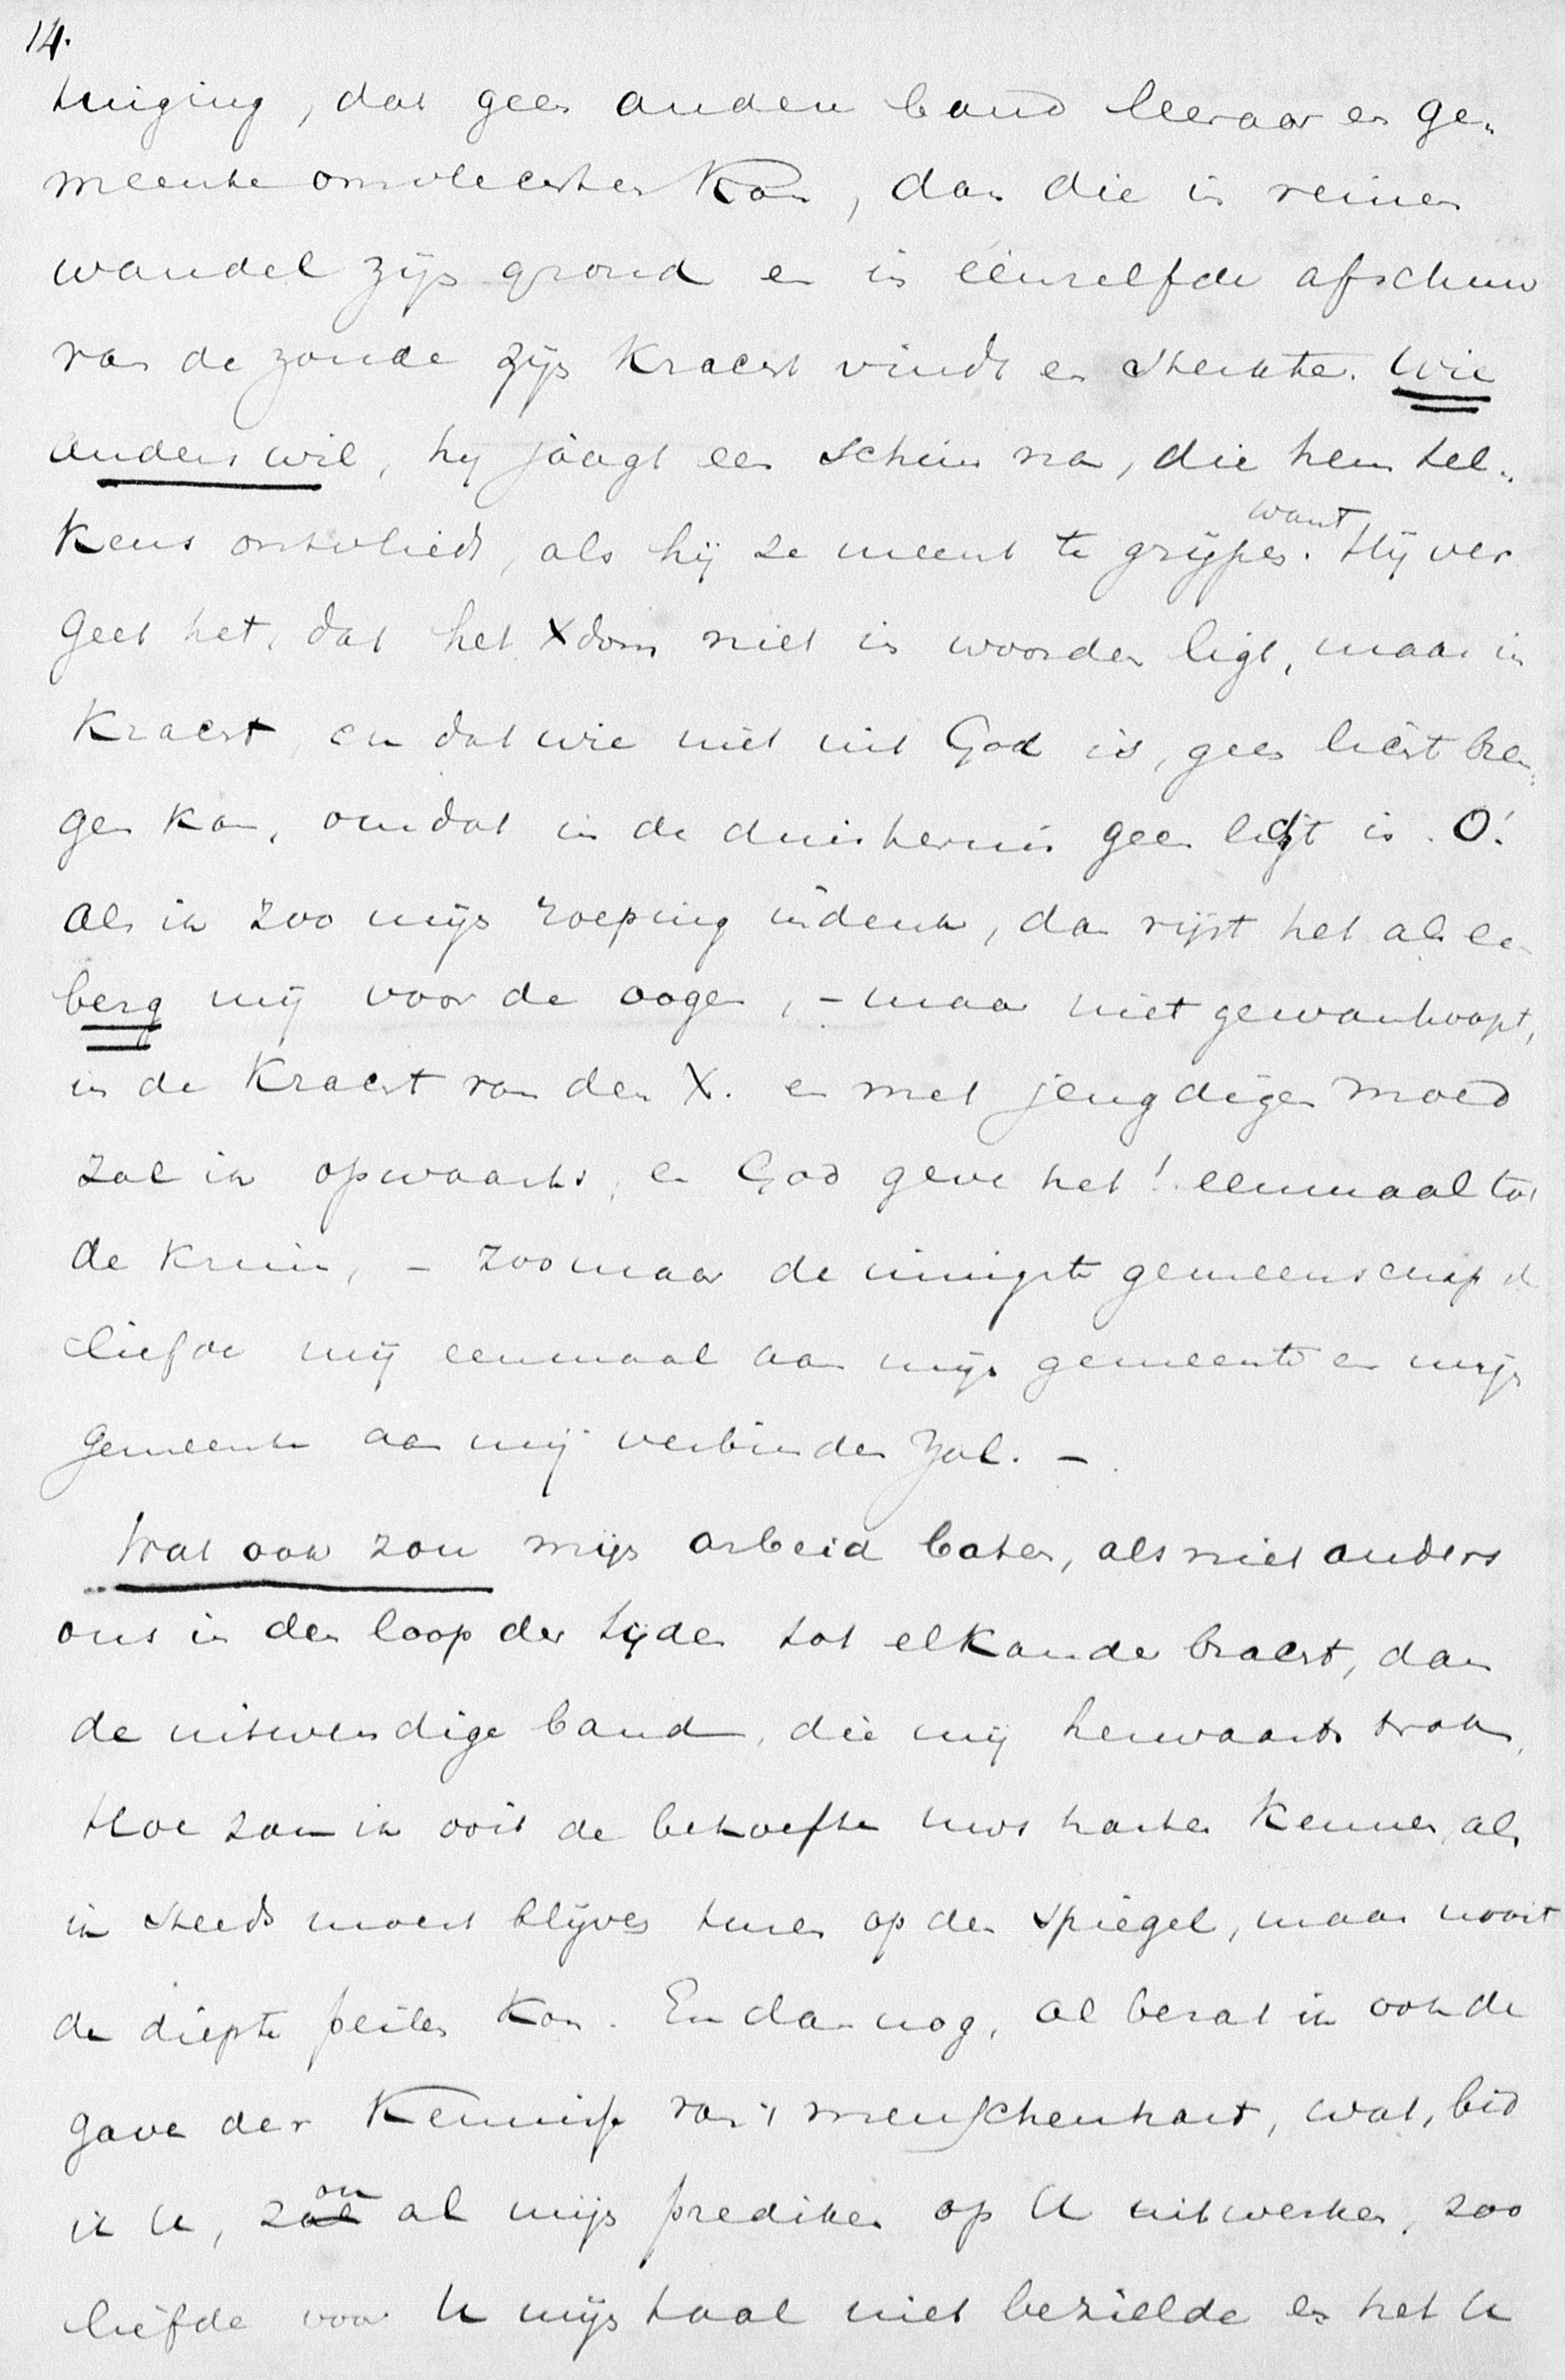 14.
tuiging, dat geen anderen band leeraar en ge„
meente omvlechten kan, dan die in reinen
wandel zijn grond en in éénzelfde afschuw
van de zonde zijn kracht vindt en sterkte. Wie
anders wil, hy jaagt een schim na, die hem tel„
kens ontvliedt, als hij ze meent te grijpen. want Hij ver
geet het, dat het Xdom niet in woorden ligt, maar in
kracht, en dat wie niet uit God is, geen licht bren„
gen kan, omdat in de duisternis geen licht is. O!
als ik zoo mijn roeping indenk, dan rijst het als een
berg mij voor de oogen, – maar niet gewanhoopt,
in de kracht van den X. en met jeugdigen moed
zal ik opwaarts, en God geve het! eenmaal tot
de kruin, – zoo maar de innigste gemeenschap d
liefde mij eenmaal aan mijn gemeente en mijn
gemeente aan mij verbinden zal. –
Wat ook zou mijn arbeid baten, als niet anders
ons in den loop der tijden tot elkander bracht, dan
de uitwendige band, die mij herwaarts trok,
Hoe zou ik ooit de behoefte uws harten kennen, als
ik steeds moest blijven turen op den spiegel, maar nooit
de diepte peilen kon. En dan nog, al bezat ik ook de
gave der kennisse van 't menschenhart, wat, bid
ik U, zou al mijn prediken op U uitwerken, zoo
liefde voor U mijn taal niet bezielde en het U